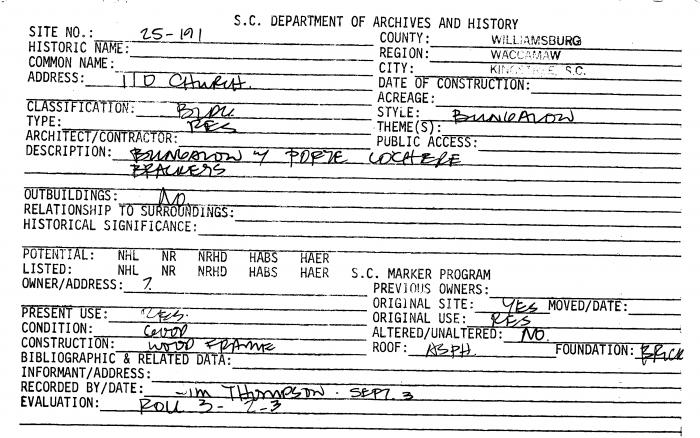 S.C. DEPARTMENT OF ARCHIVES AND HISTORY
SITE NO.: 25-191 COUNTY: WILLIAMSBURG
HISTORIC NAME: REGION: WACCAMAW
COMMON NAME: CITY: KINGSTREE, S.C.
ADDRESS: 110 CHURCH. DATE OF CONSTRUCTION:
ACREAGE:
CLASSIFICATION: BLDG STYLE: BUNGALOW
TYPE: RES THEME(S):
ARCHITECT/CONTRACTOR: PUBLIC ACCESS:
DESCRIPTION: BUNGALOW PORTE COCHERE
BRACKETS
OUTBUILDINGS: NO
RELATIONSHIP TO SURROUNDINGS:
HISTORICAL SIGNIFICANCE:
POTENTIAL: NHL NR NRHD HABS HAER
LISTED: NHL NR NRHD HABS HAER S.C. MARKER PROGRAM
OWNER/ADDRESS: ?. PREVIOUS OWNERS:
ORIGINAL SITE: YES MOVED/DATE:
PRESENT USE: RES. ORIGINAL USE: RES
CONDITION: GOOD ALTERED/UNALTERED: NO.
CONSTRUCTION: WOOD FRAME ROOF: ASPH. FOUNDATION: BRICK
BIBLIOGRAPHIC & RELATED DATA:
INFORMANT/ADDRESS:
RECORDED BY/DATE: JIM THOMPSON. SEPT. 3
EVALUATION: ROLL 3- 2-3